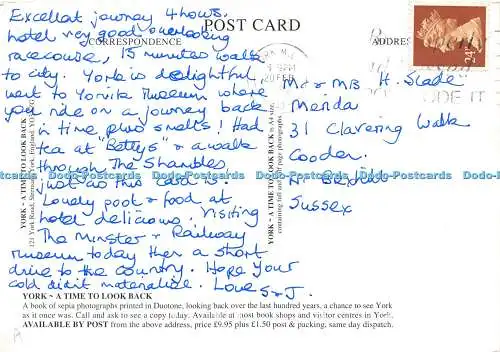 POST CARD
CORRESPONDENCE
ADDRESS
Excellent journey 4 hours.
hotel very good overlooking
racecourse, 15 minutes walk
to city. York is delightful
went to Yorvik Museum where
you ride on a journey back
in time plus smells! Had
tea at "Bettys" & a walk
through The Shambles,
just as this card is.
Lovely pool & food at
hotel delicious. Visiting
The Minster & Railway
museum today then a short
drive to the country. Hope your
cold didn't materialise. Love
S & J.
Mr & Mrs H. Slade
31 Clavering Walk
Cooden
Nr Bexhill
Sussex
24
YORK ~ A TIME TO LOOK BACK
YORK ~ A TIME TO LOOK BACK
Dodo-Postcards Dodo-Postcards Dodo-Postcards Dodo-Postcards Dodo-Postcards Dodo-Postcards
YORK ~ A TIME TO LOOK BACK
A book of sepia photographs printed in Duotone, looking back over the last hundred years, a chance to see York
as it once was. Call and ask to see a copy today. Available at most book shops and visitor centres in York.
AVAILABLE BY POST from the above address, price £9.95 plus £1.50 post & packing, same day dispatch.